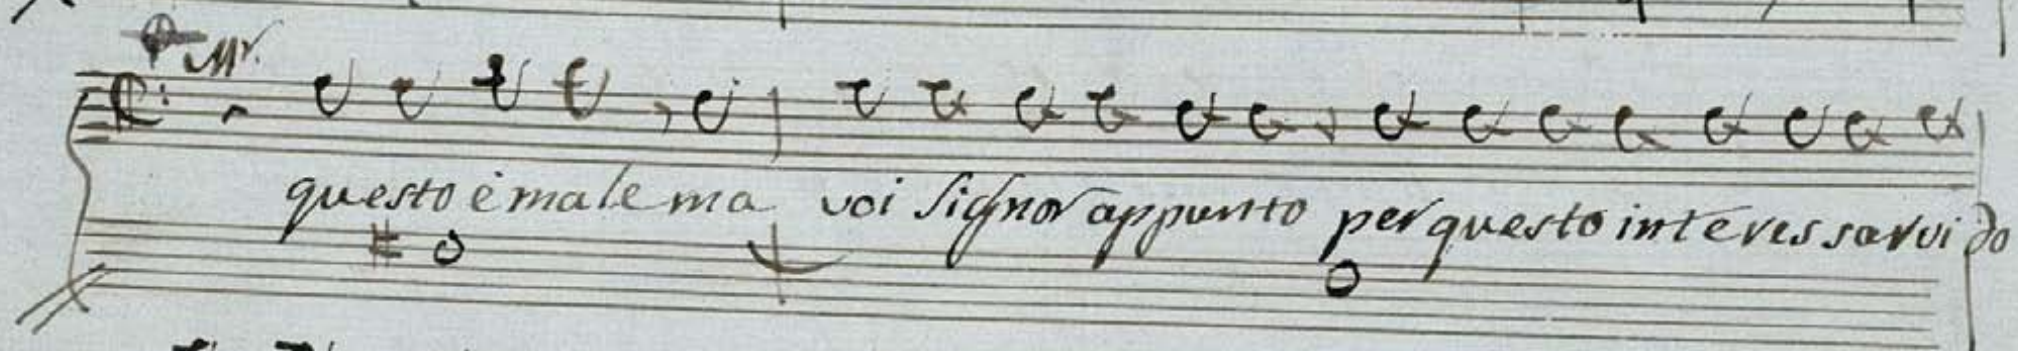 Mr.
questo è male ma voi Signor appunto per questo interessarvi do